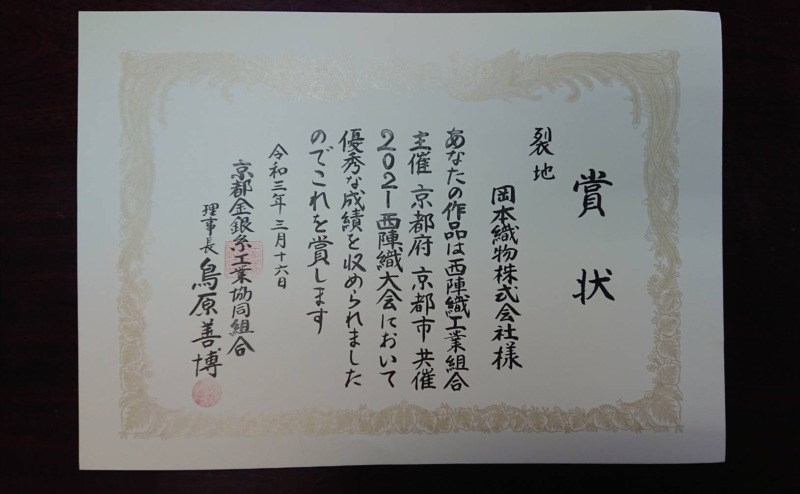 賞状
裂地
岡本織物株式会社様
あなたの作品は西陣織工業組合
主催 京都府 京都市 共催
2021西陣織大会において
優秀な成績を収められました
のでこれを賞します
令和三年三月十六日
京都金銀糸工業協同組合
理事長 鳥原善博